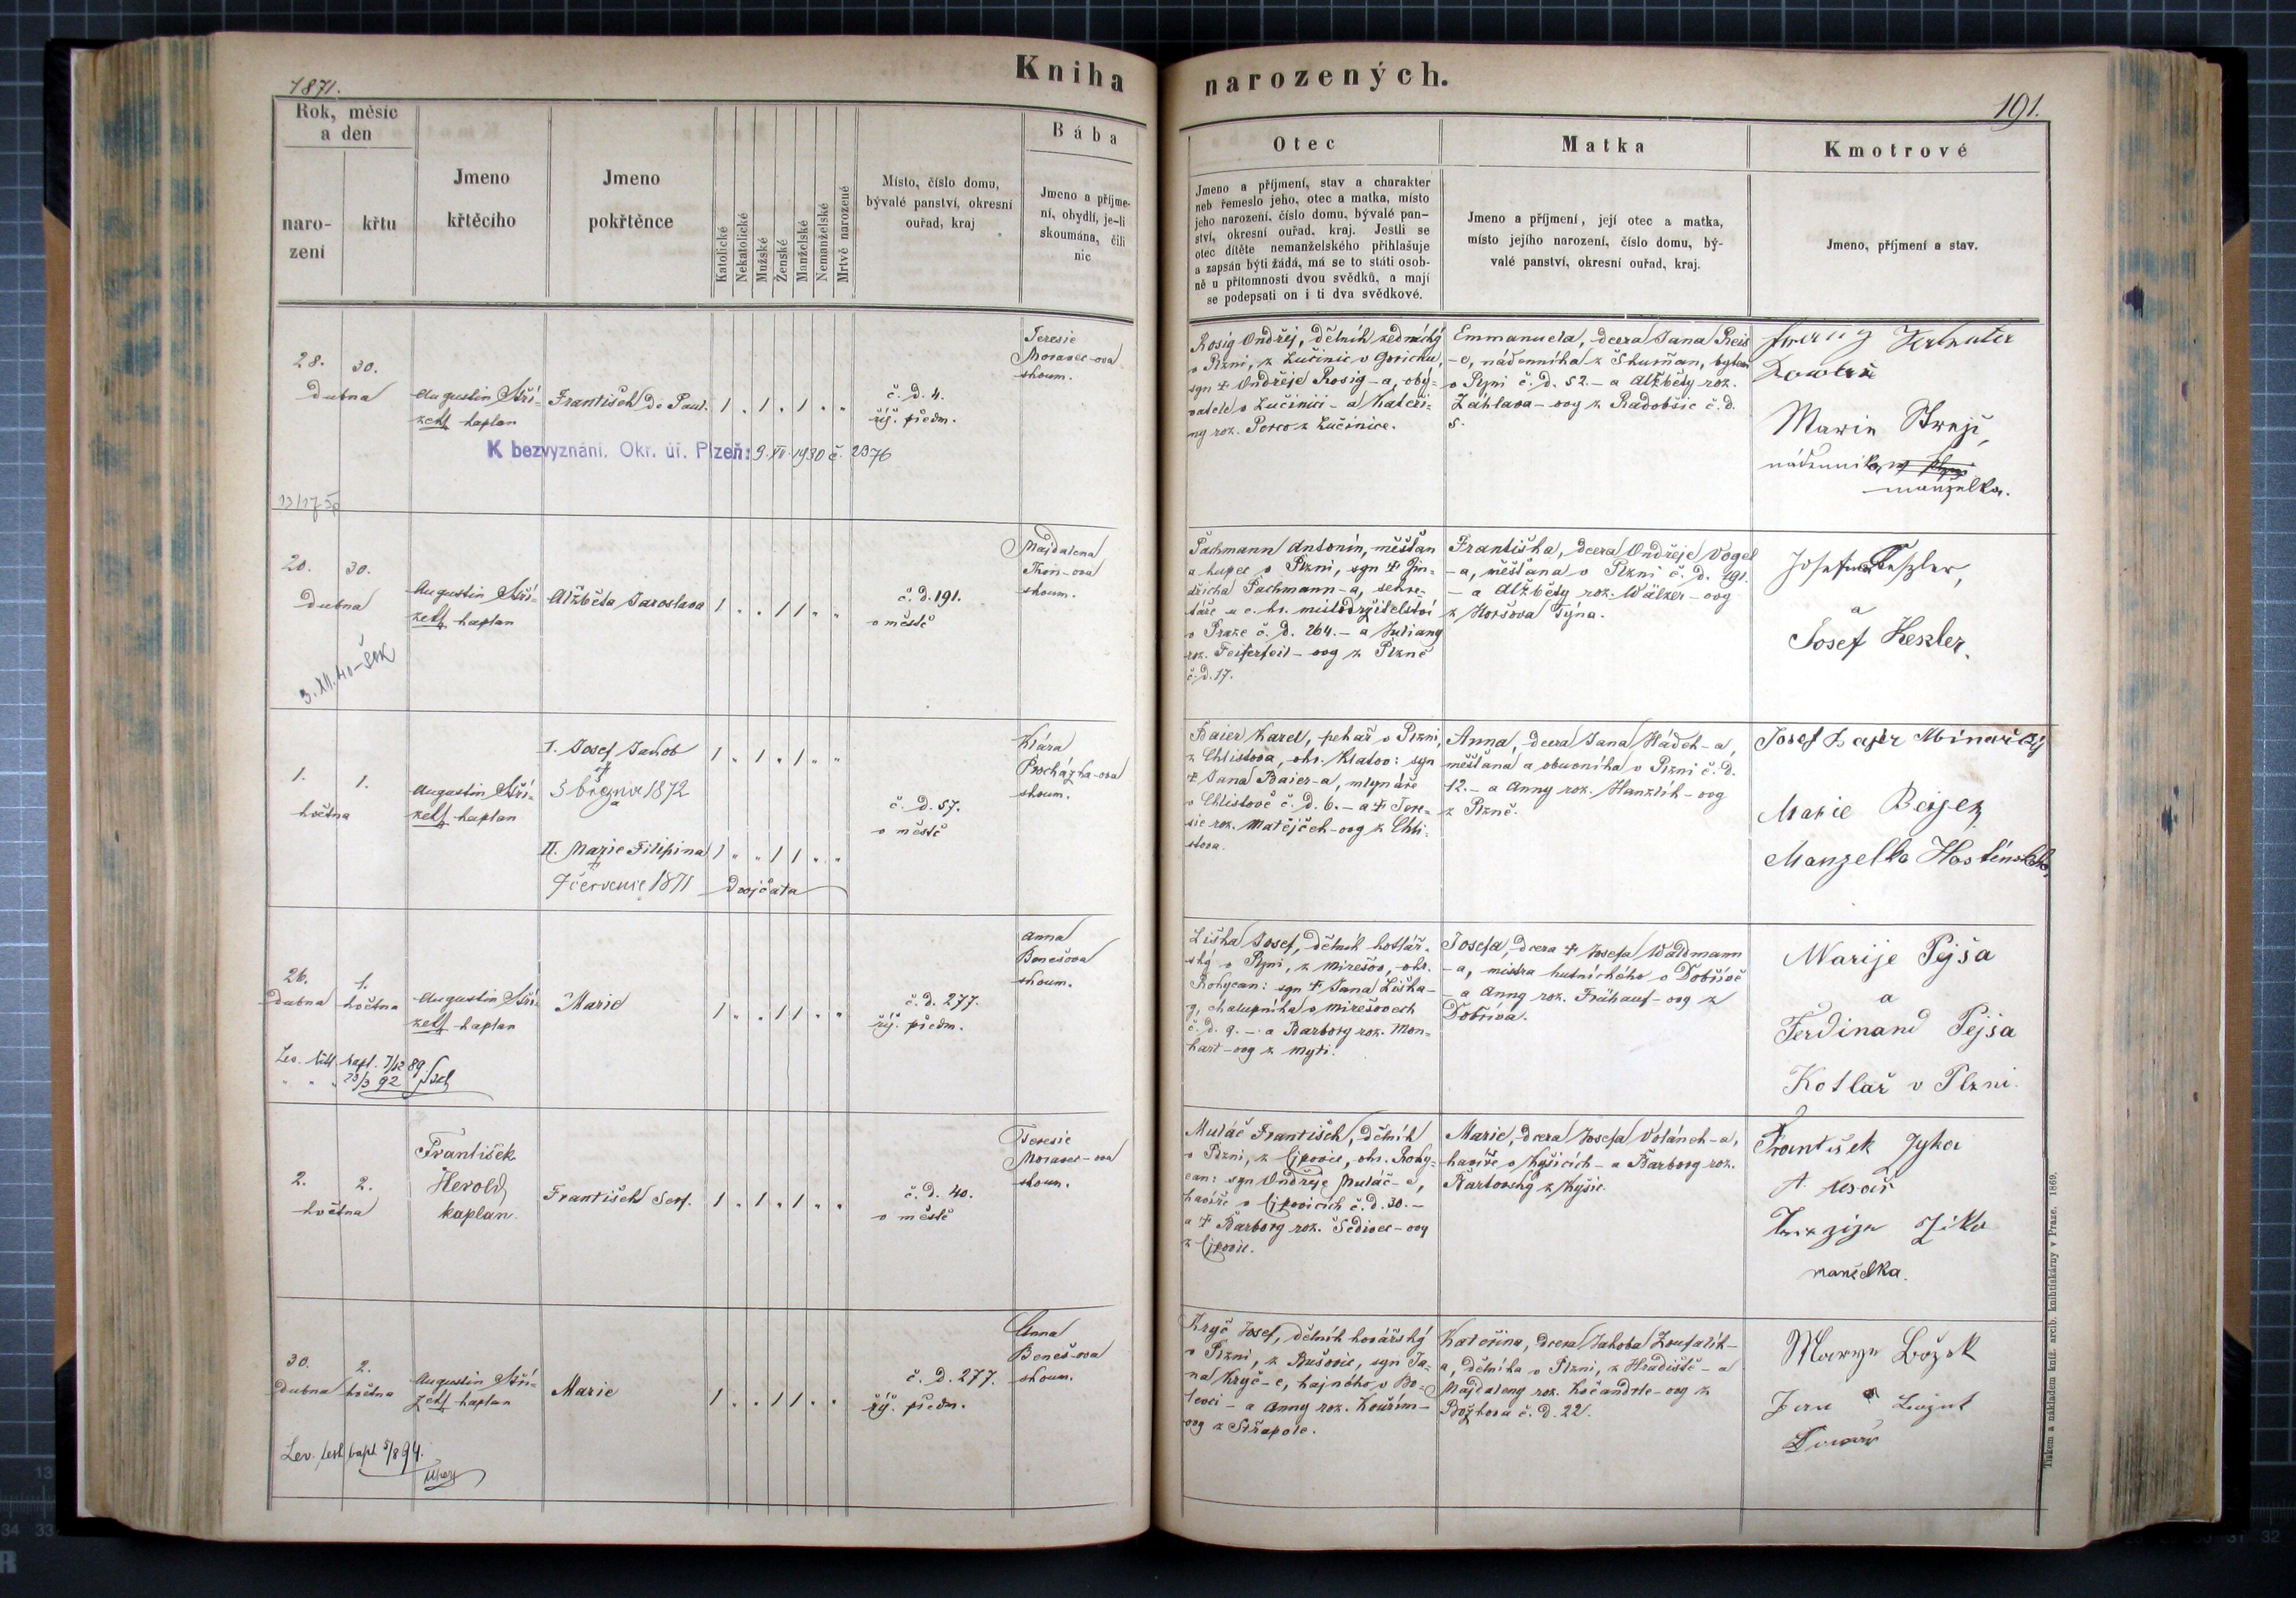 1871.
Kniha narozených.
191.
Rok, měsíc
a den
naro-
zení
křtu
Jmeno
křtěcího
Jmeno
pokřtěnce
Katolické
Nekatolické
Mužské
Ženské
Manželské
Nemanželské
Mrtvě narozené
Místo, číslo domu,
bývalé panství, okresní
ouřad, kraj
Bába
Jmeno a příjme-
ní, obydlí, je-li
skoumána, čili
nic
Otec
Jmeno a příjmení, stav a charakter
neb řemeslo jeho, otec a matka, místo
jeho narození, číslo domu, bývalé pan-
ství, okresní ouřad, kraj. Jestli se
otec dítěte nemanželského přihlašuje
a zapsán býti žádá, má se to státi osob-
ně u přítomnosti dvou svědků, a mají
se podepsati on i ti dva svědkové.
Matka
Jmeno a příjmení, její otec a matka,
místo jejího narození, číslo domu, bý-
valé panství, okresní ouřad, kraj.
Kmotrové
Jmeno, příjmení a stav.
28. 30.
dubna
Augustin Stří-
zek kaplan
František de Paul.
1 . 1 . 1 . .
č. d. 4.
říž. předm.
Teresie
Moravec-ova
skoum.
K bezvyznání. Okr. úř. Plzeň: 9. XII. 1930 č. 2376
Rosig Ondřej, dělník zednický
v Plzni, z Lučinic v Goricku,
syn † Ondřeje Rosig-a, oby-
vatele v Lučinici - a Kateři-
ny roz. Porco z Lučinice.
Emmanuela, dcera Jana Reis
-e, nádenníka z Skurňan, bytem
v Plzni č. d. 52. - a Alžběty roz.
Záhlava-ovy z Radobšic č. d.
5.
Marie
nádenníka
manželka.
20. 30.
dubna
3. XII. 40
Augustin Stří-
zek kaplan
Alžběta Jaroslava
1 . . 1 1 . .
č. d. 191.
v městě
Majdalena
Thon-ova
skoum.
Pachmann Antonín, měšťan
a kupec v Plzni, syn † Jin-
dřicha Pachmann-a, sekre-
táře u c. kr. místodržitelství
v Praze č. d. 264. - a Juliany
roz. Feiferfeil-ovy z Plzně
č. d. 17.
Františka, dcera Ondřeje Vogel
-a, měšťana v Plzni č. d. 191.
- a Alžběty roz. Wälzer-ovy
z Horšova Týna.
a
Josef Keszler.
1. 1.
května
Augustin Stří-
zek kaplan
I. Josef Jakob
†
5 března 1872
a
II. Marie Filipina
†
9 července 1871
1 . 1 . 1 . .
1 . . 1 1 . .
dvojčata
č. d. 57.
v městě
Klára
Procházka-ova
skoum.
Baier Karel, pekař v Plzni,
z Chlistova, okr. Klatov: syn
† Jana Baier-a, mlynáře
v Chlistově č. d. 6. - a † Tere-
sie roz. Matějček-ovy z Chli-
stova.
Anna, dcera Jana Hádek-a,
měšťana a obuvníka v Plzni č. d.
12. - a Anny roz. Hanzlík-ovy
z Plzně.
Josef Bajer
Marie
Manzelka
26. 1.
dubna května
Augustin Stří-
zek kaplan
Marie
1 . . 1 1 . .
č. d. 277.
říž. předm.
Anna
Benešova
skoum.
Lev. test. bapt. 7/12 89.
" " " 23/3 92
Liška Josef, dělník kotlář-
ský v Plzni, z Mirešov, okr.
Rokycan: syn † Jana Liška-
y, chalupníka v Mirešovech
č. d. 9. - a Barbory roz. Mon-
hart-ovy z Myti.
Josefa, dcera † Josefa Waldmann
-a, mistra hutnického v Dobřívě
- a Anny roz. Frühauf-ovy z
Dobříva.
Marije Pejša
a
Ferdinand Pejša
Kotlař v Plzni.
2. 2.
května
František
Herold
kaplan.
František Serf.
1 . 1 . 1 . .
č. d. 40.
v městě
Teresie
Moravec-ova
skoum.
Muláč František, dělník
v Plzni, z Ejpovic, okr. Roky-
can: syn Ondřeje Muláč-e,
havíře v Ejpovicích č. d. 30. -
a † Barbory roz. Šedivec-ovy
z Ejpovic.
Marie, dcera Josefa Volánek-a,
havíře v Kyšicích - a Barbory roz.
Bartovský z Kyšic.
František
manželka.
30. 2.
dubna května
Augustin Stří-
zek kaplan
Marie
1 . . 1 1 . .
č. d. 277.
říž. předm.
Anna
Beneš-ova
skoum.
Lev. test. bapt. 5/8 94.
Kryč Josef, dělník kovářský
v Plzni, z Bušovic, syn Ja-
na Kryč-e, hajného v Bo-
levci - a Anny roz. Kouřím-
ovy z Střapole.
Kateřina, dcera Jakoba Zoufalík-
a, dělníka v Plzni, z Hradiště - a
Majdaleny roz. Kočandrle-ovy z
Božkova č. d. 22.
a
Tiskem a nákladem kníž. arcib. knihtiskárny v Praze. 1869.